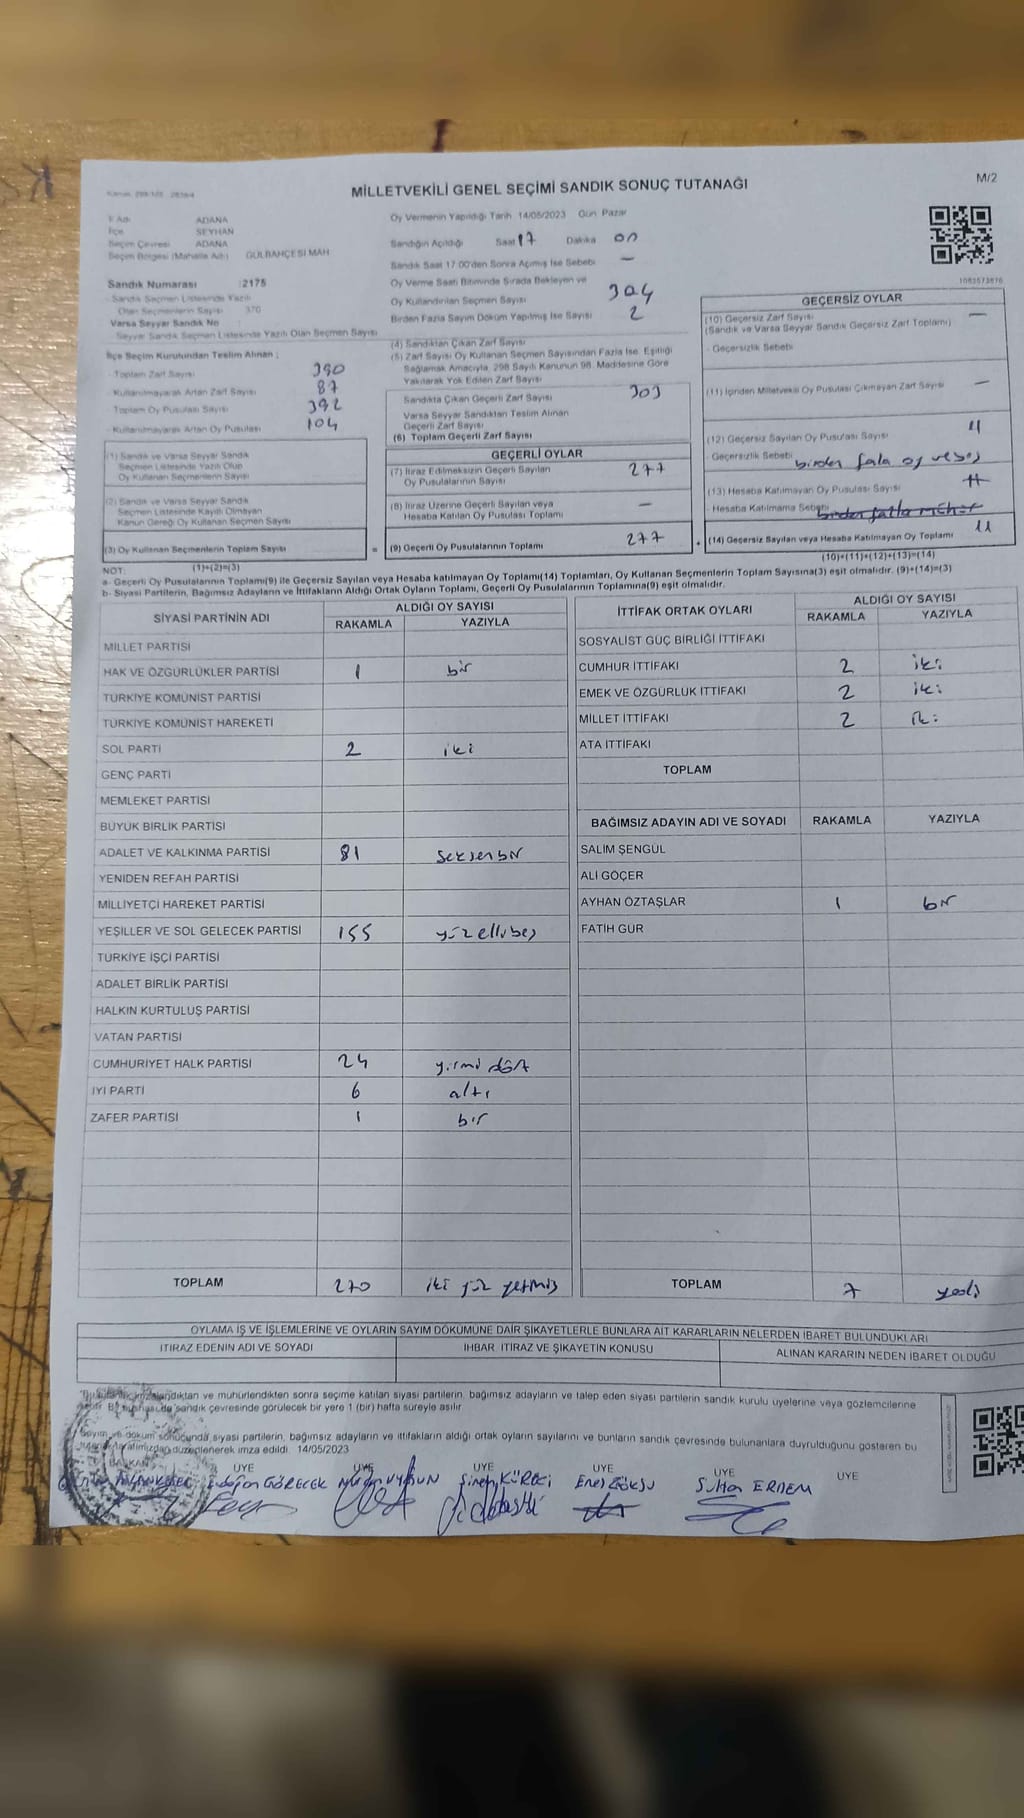 MİLLETVEKİLİ GENEL SEÇİMİ SANDIK SONUÇ TUTANAĞI
M/2
İl Adı ADANA
İlçe SEYHAN
Seçim Çevresi ADANA
Seçim Bölgesi (Mahalle Adı) GÜLBAHÇESİ MAH
Sandık Numarası :2175
Sandık Seçmen Listesinde Yazılı
Olan Seçmenlerin Sayısı 370
Varsa Seyyar Sandık No
Seyyar Sandık Seçmen Listesinde Yazılı Olan Seçmen Sayısı
İlçe Seçim Kurulundan Teslim Alınan ;
- Toplam Zarf Sayısı 390
- Kullanılmayarak Artan Zarf Sayısı 87
- Toplam Oy Pusulası Sayısı 392
- Kullanılmayarak Artan Oy Pusulası 104
(1) Sandık ve Varsa Seyyar Sandık
Seçmen Listesinde Yazılı Olup
Oy Kullanan Seçmenlerin Sayısı
(2) Sandık ve Varsa Seyyar Sandık
Seçmen Listesinde Kayıtlı Olmayan
Kanun Gereği Oy Kullanan Seçmen Sayısı
(3) Oy Kullanan Seçmenlerin Toplam Sayısı
(1)+(2)=(3)
Oy Vermenin Yapıldığı Tarih 14/05/2023 Gün Pazar
Sandığın Açıldığı Saat 17 Dakika 00
Sandık Saat 17:00'den Sonra Açılmış İse Sebebi –
Oy Verme Saati Bitiminde Sırada Bekleyen ve
Oy Kullandırılan Seçmen Sayısı
Birden Fazla Sayım Döküm Yapılmış İse Sayısı 2
304
(4) Sandıktan Çıkan Zarf Sayısı
(5) Zarf Sayısı Oy Kullanan Seçmen Sayısından Fazla İse, Eşitliği
Sağlamak Amacıyla, 298 Sayılı Kanunun 98. Maddesine Göre
Yakılarak Yok Edilen Zarf Sayısı
Sandıkta Çıkan Geçerli Zarf Sayısı 303
Varsa Seyyar Sandıktan Teslim Alınan
Geçerli Zarf Sayısı
(6) Toplam Geçerli Zarf Sayısı
GEÇERLİ OYLAR
(7) İtiraz Edilmeksizin Geçerli Sayılan
Oy Pusulalarının Sayısı 277
(8) İtiraz Üzerine Geçerli Sayılan veya
Hesaba Katılan Oy Pusulası Toplamı –
= (9) Geçerli Oy Pusulalarının Toplamı 277 +
GEÇERSİZ OYLAR
(10) Geçersiz Zarf Sayısı –
(Sandık ve Varsa Seyyar Sandık Geçersiz Zarf Toplamı)
- Geçersizlik Sebebi
(11) İçinden Milletvekili Oy Pusulası Çıkmayan Zarf Sayısı –
(12) Geçersiz Sayılan Oy Pusulası Sayısı 11
- Geçersizlik Sebebi birden fala oy
(13) Hesaba Katılmayan Oy Pusulası Sayısı
- Hesaba Katılmama Sebebi birden fazla mühür
(14) Geçersiz Sayılan veya Hesaba Katılmayan Oy Toplamı 11
(10)+(11)+(12)+(13)=(14)
NOT:
a- Geçerli Oy Pusulalarının Toplamı(9) ile Geçersiz Sayılan veya Hesaba katılmayan Oy Toplamı(14) Toplamları, Oy Kullanan Seçmenlerin Toplam Sayısına(3) eşit olmalıdır. (9)+(14)=(3)
b- Siyasi Partilerin, Bağımsız Adayların ve İttifakların Aldığı Ortak Oyların Toplamı, Geçerli Oy Pusulalarının Toplamına(9) eşit olmalıdır.
SİYASİ PARTİNİN ADI ALDIĞI OY SAYISI
RAKAMLA YAZIYLA
MİLLET PARTİSİ
HAK VE ÖZGÜRLÜKLER PARTİSİ 1 bir
TÜRKİYE KOMÜNİST PARTİSİ
TÜRKİYE KOMÜNİST HAREKETİ
SOL PARTİ 2 iki
GENÇ PARTİ
MEMLEKET PARTİSİ
BÜYÜK BİRLİK PARTİSİ
ADALET VE KALKINMA PARTİSİ 81 seksenbir
YENİDEN REFAH PARTİSİ
MİLLİYETÇİ HAREKET PARTİSİ
YEŞİLLER VE SOL GELECEK PARTİSİ 155 yüzellibeş
TÜRKİYE İŞÇİ PARTİSİ
ADALET BİRLİK PARTİSİ
HALKIN KURTULUŞ PARTİSİ
VATAN PARTİSİ
CUMHURİYET HALK PARTİSİ 24 yirmi dört
İYİ PARTİ 6 altı
ZAFER PARTİSİ 1 bir
TOPLAM 270 iki yüz yetmiş
İTTİFAK ORTAK OYLARI ALDIĞI OY SAYISI
RAKAMLA YAZIYLA
SOSYALİST GÜÇ BİRLİĞİ İTTİFAKI
CUMHUR İTTİFAKI 2 iki
EMEK VE ÖZGÜRLÜK İTTİFAKI 2 iki
MİLLET İTTİFAKI 2 iki
ATA İTTİFAKI
TOPLAM
BAĞIMSIZ ADAYIN ADI VE SOYADI RAKAMLA YAZIYLA
SALİM ŞENGÜL
ALİ GÖÇER
AYHAN ÖZTAŞLAR 1 bir
FATİH GÜR
TOPLAM 7 yedi
OYLAMA İŞ VE İŞLEMLERİNE VE OYLARIN SAYIM DÖKÜMÜNE DAİR ŞİKAYETLERLE BUNLARA AİT KARARLARIN NELERDEN İBARET BULUNDUKLARI
İTİRAZ EDENİN ADI VE SOYADI İHBAR İTİRAZ VE ŞİKAYETİN KONUSU ALINAN KARARIN NEDEN İBARET OLDUĞU
imzalandıktan ve mühürlendikten sonra seçime katılan siyasi partilerin, bağımsız adayların ve talep eden siyasi partilerin sandık kurulu üyelerine veya gözlemcilerine
sandık çevresinde görülecek bir yere 1 (bir) hafta süreyle asılır
Sayım ve döküm sonucunda siyasi partilerin, bağımsız adayların ve ittifakların aldığı ortak oyların sayılarını ve bunların sandık çevresinde bulunanlara duyrulduğunu gösteren bu
düzenlenerek imza edildi. 14/05/2023
BAŞKAN ÜYE ÜYE ÜYE ÜYE ÜYE ÜYE
Erdoğan GÖRECEK UYGUN Sinem KÜRECİ Enes GÖKSU Sultan ERDEM